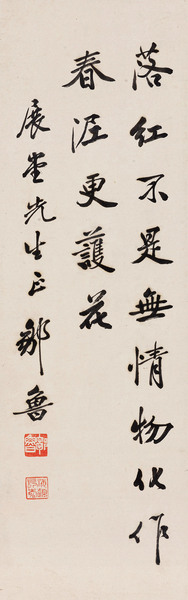 落红不是無情物化作
春泥更護花
展堂先生正鄒魯